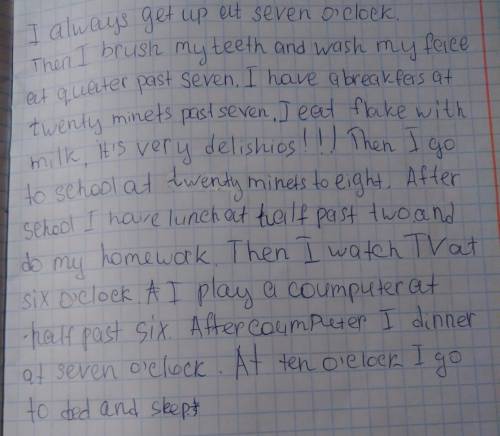 I always get up at seven o'clock.
Then I brush my teeth and wash my face
at quater past seven. I have a breakfers at
twenty minets past seven. I eat flake with
milk, it's very delishios!!! Then I go
to school at twenty minets to eight. After
school I have lunch at half past two and
do my homework. Then I watch TV at
six o'clock. I play a coumputer at
half past six. After coumputer I dinner
at seven o'clock. At ten o'clock I go
to ded and sleep